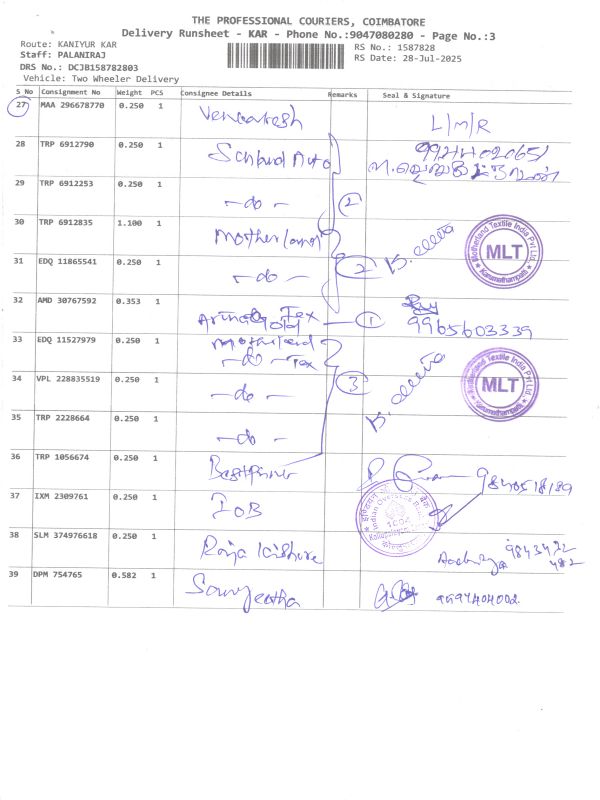 THE PROFESSIONAL COURIERS, COIMBATORE
Delivery Runsheet - KAR - Phone No.:9047080280 - Page No.:3
Route: KANIYUR KAR
Staff: PALANIRAJ
DRS No.: DCJB158782803
Vehicle: Two Wheeler Delivery
RS No.: 1587828
RS Date: 28-Jul-2025
S No Consignment No Weight PCS Consignee Details Remarks Seal & Signature
27 MAA 296678770 0.250 1 Vencatesh L/M/R
28 TRP 6912790 0.250 1 Auto 9944020651
29 TRP 6912253 0.250 1 -do- 2
30 TRP 6912835 1.100 1 Motherland
Motherland Textile India Pvt Ltd.
MLT
Karumathampatti
31 EDQ 11865541 0.250 1 -do- 2
32 AMD 30767592 0.353 1 Tex 1 9965603339
33 EDQ 11527979 0.250 1 Motherland
-do- Tex
Motherland Textile India Pvt Ltd.
MLT
Karumathampatti
34 VPL 228835519 0.250 1 -do- 3
35 TRP 2228664 0.250 1 -do-
36 TRP 1056674 0.250 1 9840518189
37 IXM 2309761 0.250 1 IOB
Indian Overseas Bank
38 SLM 374976618 0.250 1 Raja Kishore 9843422
482
39 DPM 754765 0.582 1 Sowjeetha 9994404002